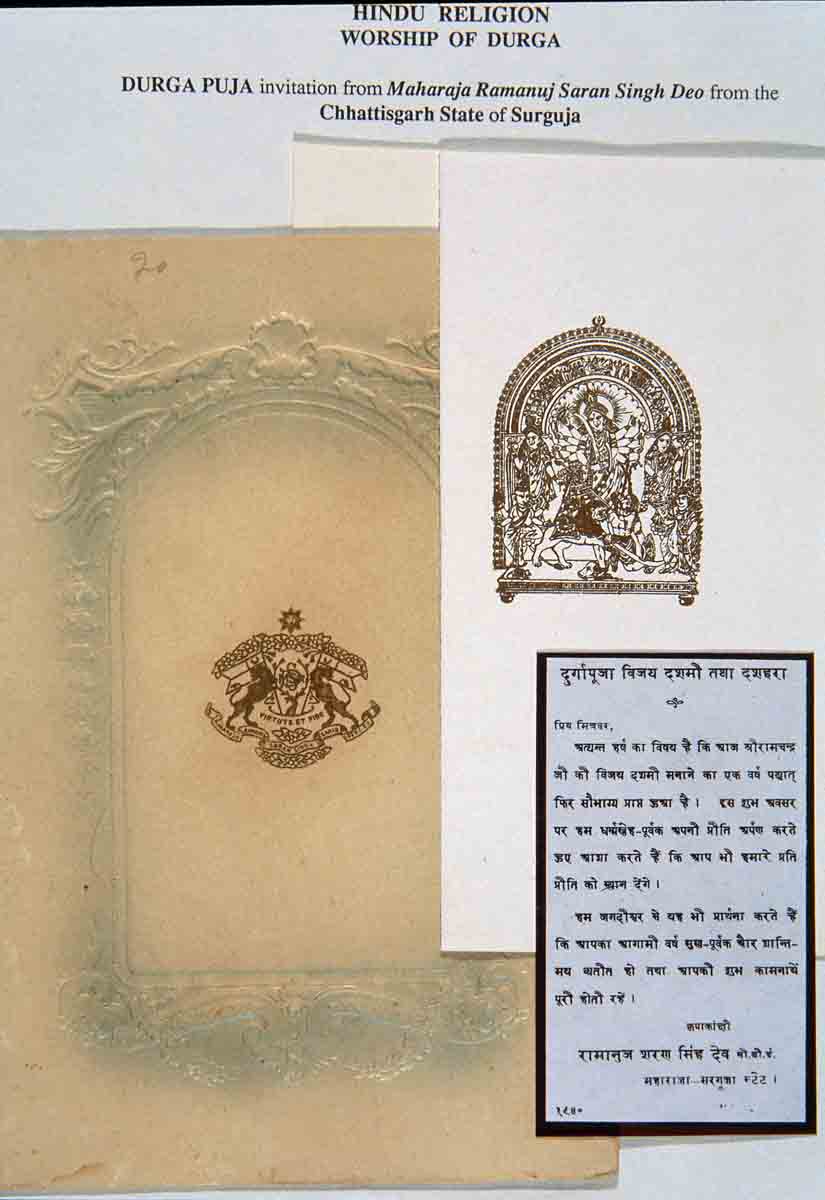 HINDU RELIGION
WORSHIP OF DURGA
DURGA PUJA invitation from Maharaja Ramanuj Saran Singh Deo from the
Chhattisgarh State of Surguja
20
VIRTUTE ET FIDE
SARAN SINGH
दुर्गापूजा विजय दशमी तथा दशहरा
प्रिय मित्रवर,
अत्यन्त हर्ष का विषय है कि आज श्रीरामचन्द्र
जी की विजय दशमी मनाने का एक वर्ष पश्चात्
फिर सौभाग्य प्राप्त हुआ है। इस शुभ अवसर
पर हम धर्म्मस्नेह-पूर्वक अपनी प्रीति अर्पण करते
हुए आशा करते हैं कि आप भी हमारे प्रति
प्रीति को स्थान देंगे।
हम जगदीश्वर से यह भी प्रार्थना करते हैं
कि आपका आगामी वर्ष सुख-पूर्वक और शान्ति-
मय व्यतीत हो तथा आपकी शुभ कामनायें
पूरी होती रहें।
कृपाकांक्षी
रामानुज शरण सिंह देव सी.बी.ई.
महाराजा—सरगुजा स्टेट।
१९४०